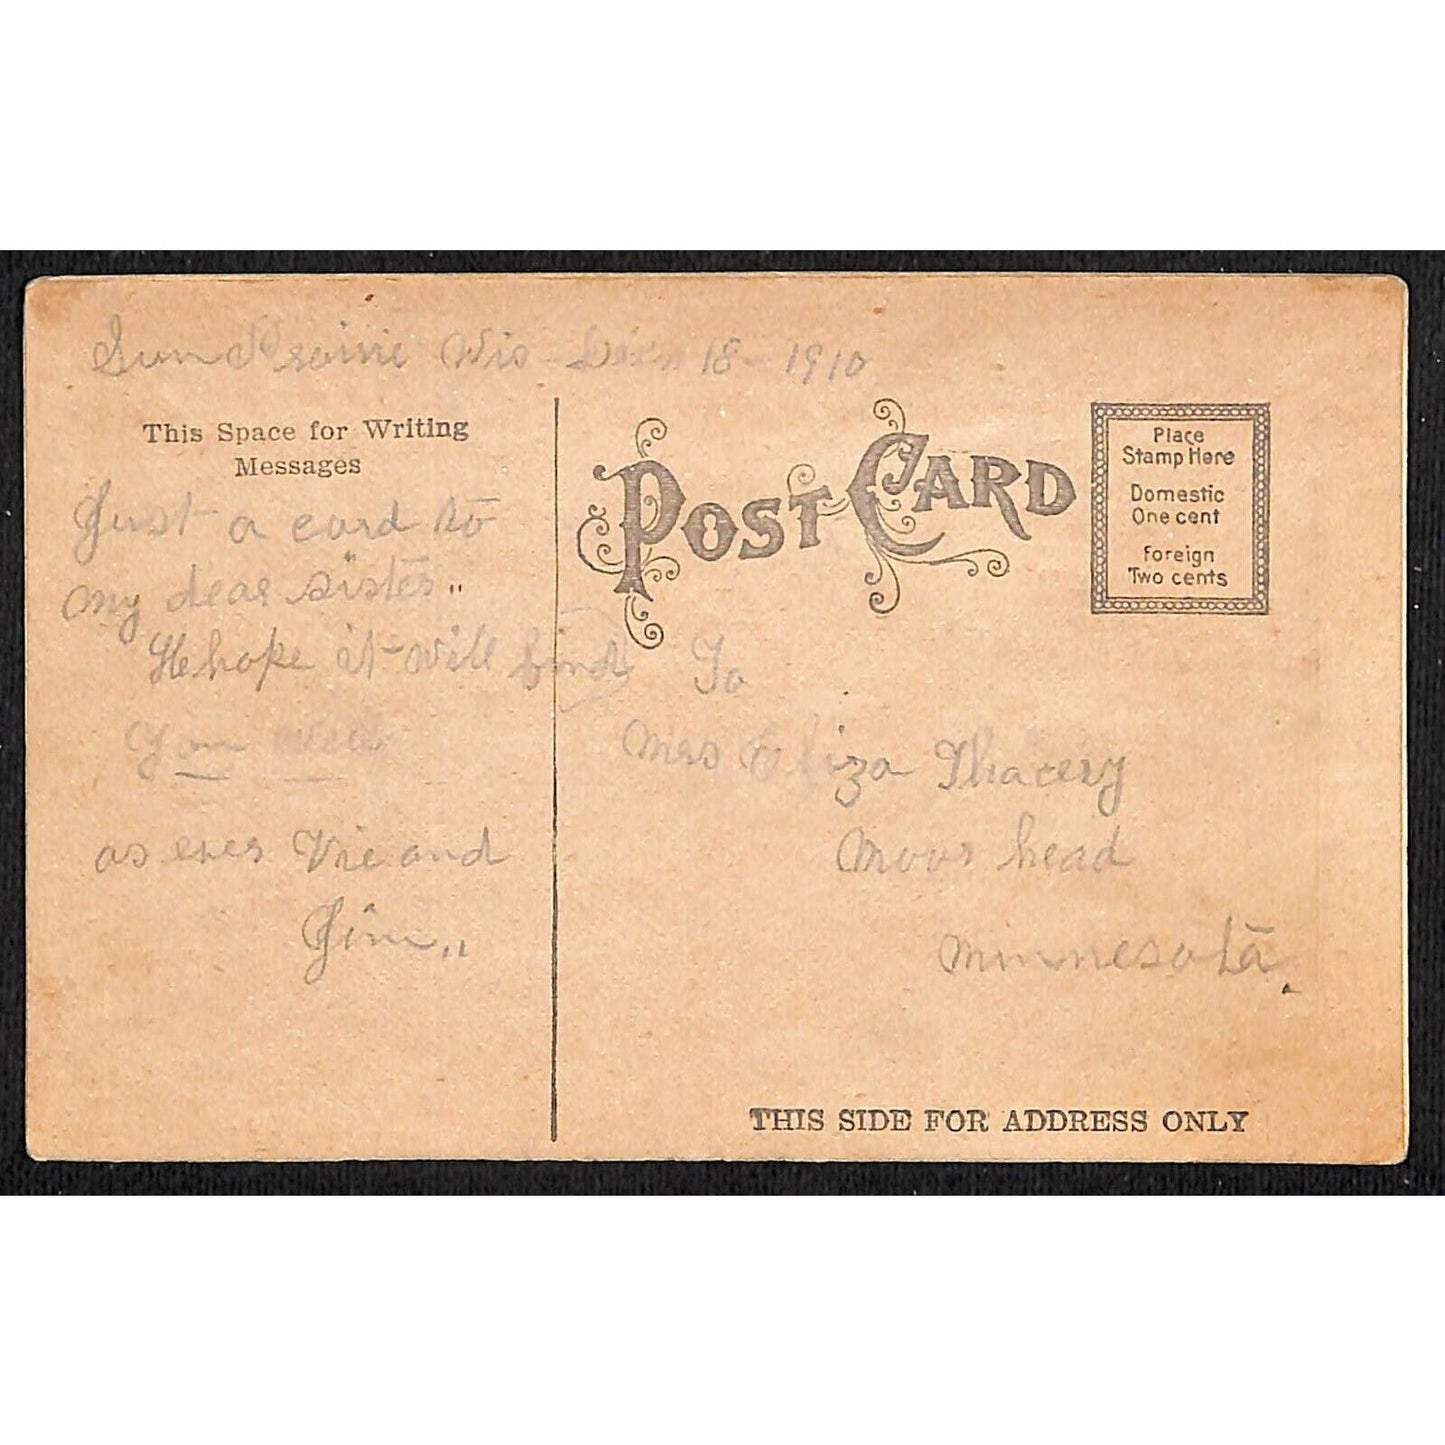 Sun Prairie Wis Dec 18 - 1910
This Space for Writing
Messages
Just a card to
my dear sister..
He hope it will find
you well
as ever Vic and
Jim..
POST CARD
Place
Stamp Here
Domestic
One cent
Foreign
Two cents
To
Mrs Eliza Thacery
Moor head
Minnesota.
THIS SIDE FOR ADDRESS ONLY